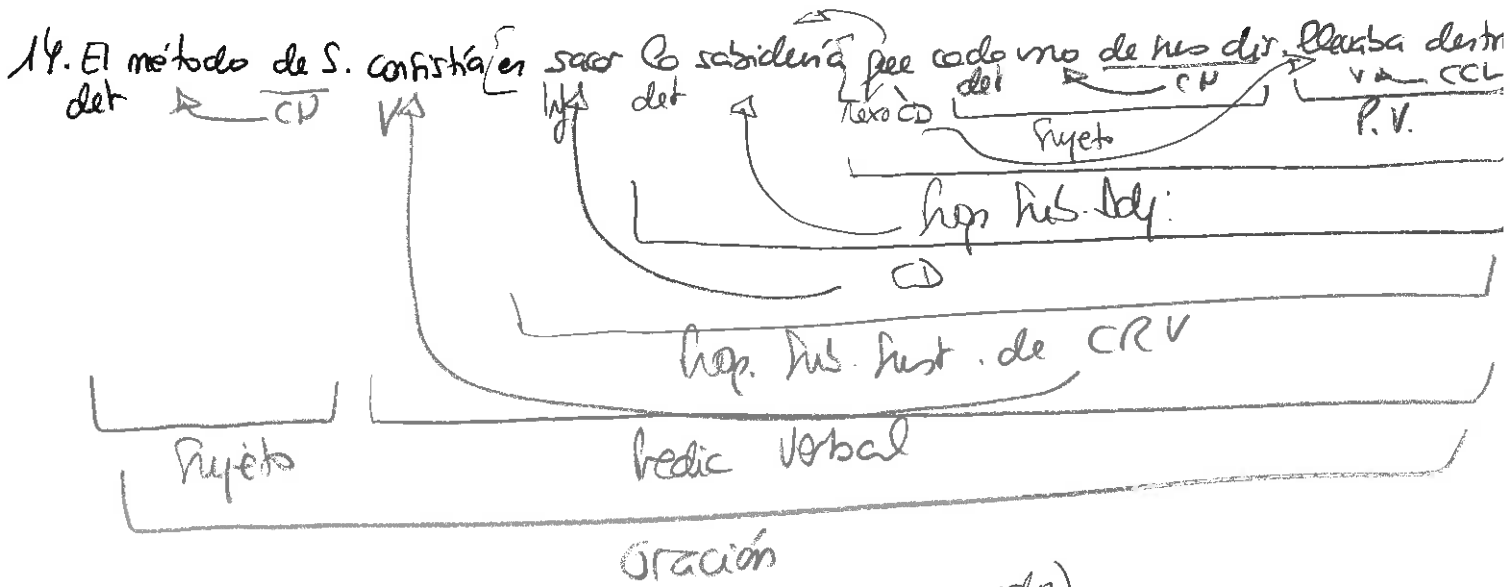 14. El método de S. consistía en sacar la sabiduría que cada uno de sus dis. llevaba dentr
det CN V Inf det nexo CD det CN V CCL
Sujeto P.V.
Prop. Sub. Adj.
CD
Prop. Sub. Sust. de CRV
Sujeto Predic Verbal
Oración